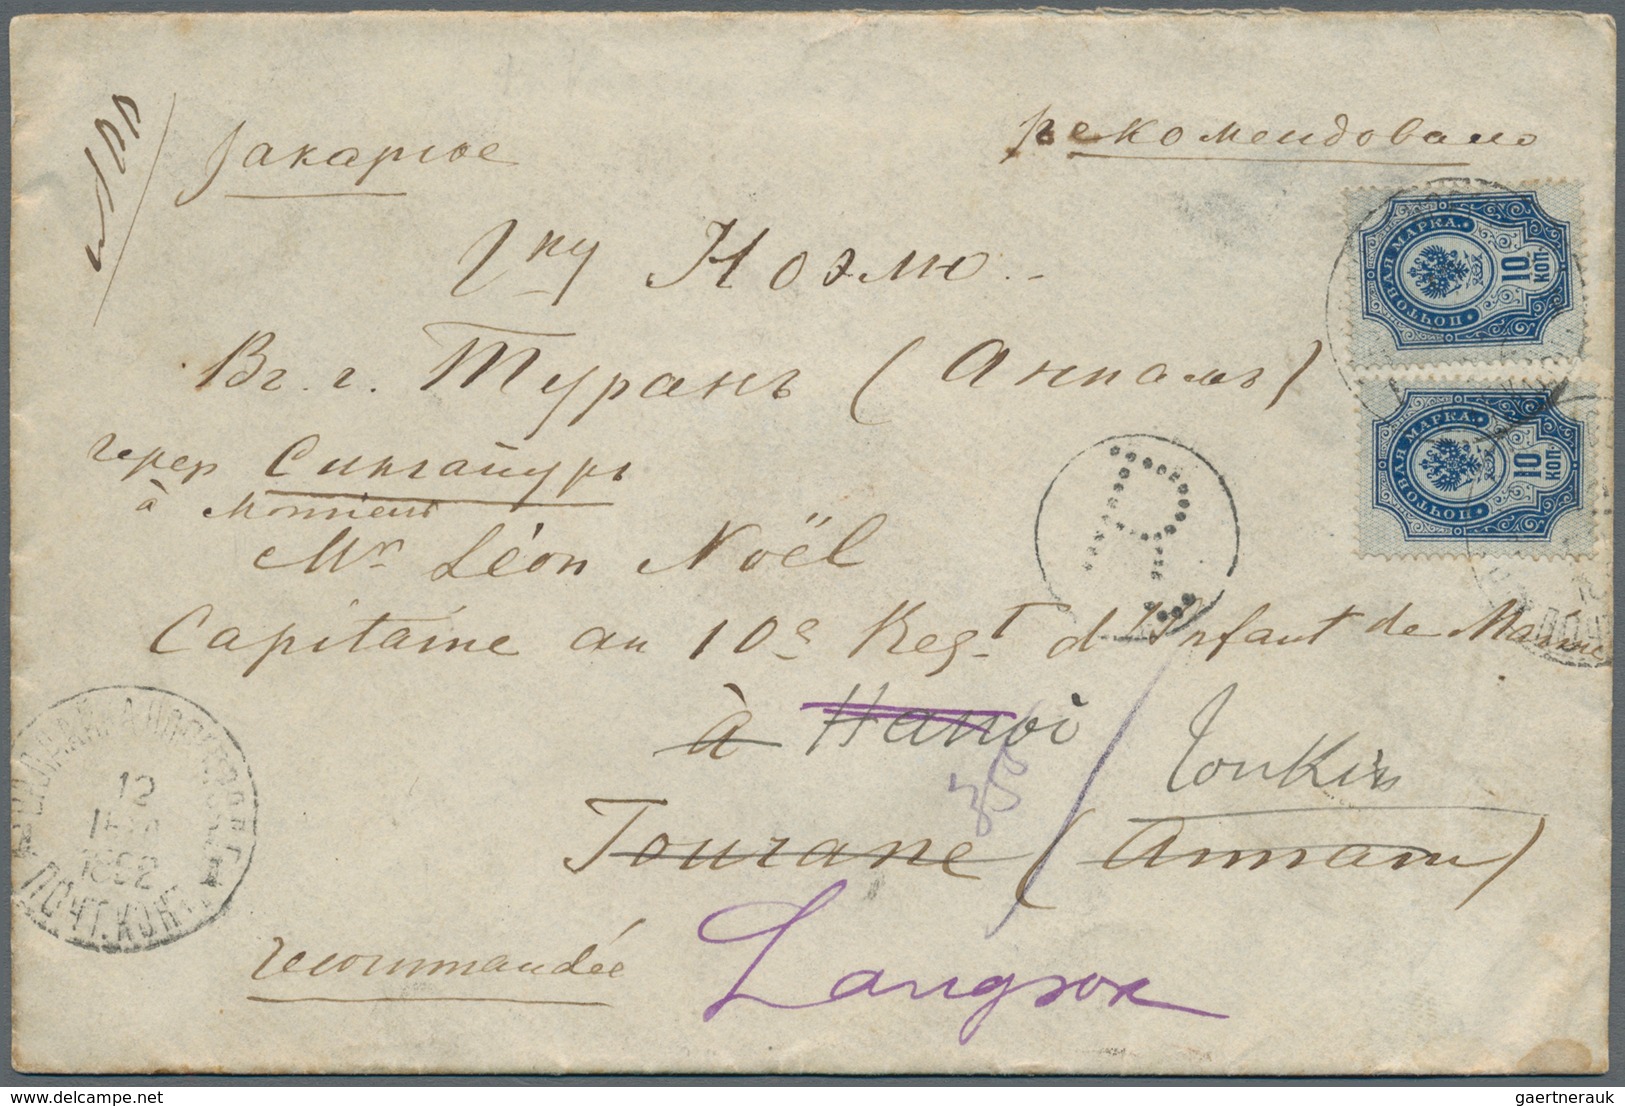 рекомендовано
Г-ну Ноэлю
Вг. г. Туранъ (Аннамъ)
через Сингапуръ
à Monsieur
Mr Léon Noël
Capitaine au 10e Regt d'Infant de Marine
à Hanoi
Tonkin
Tourane (Annam)
recommandée
Langson
ПОЧТОВАЯ МАРКА.
10 КОП.
ПОЧТОВАЯ МАРКА.
10 КОП.
R
12
ПОЧТ. КОНТ.
delcampe.net
gaertnerauk